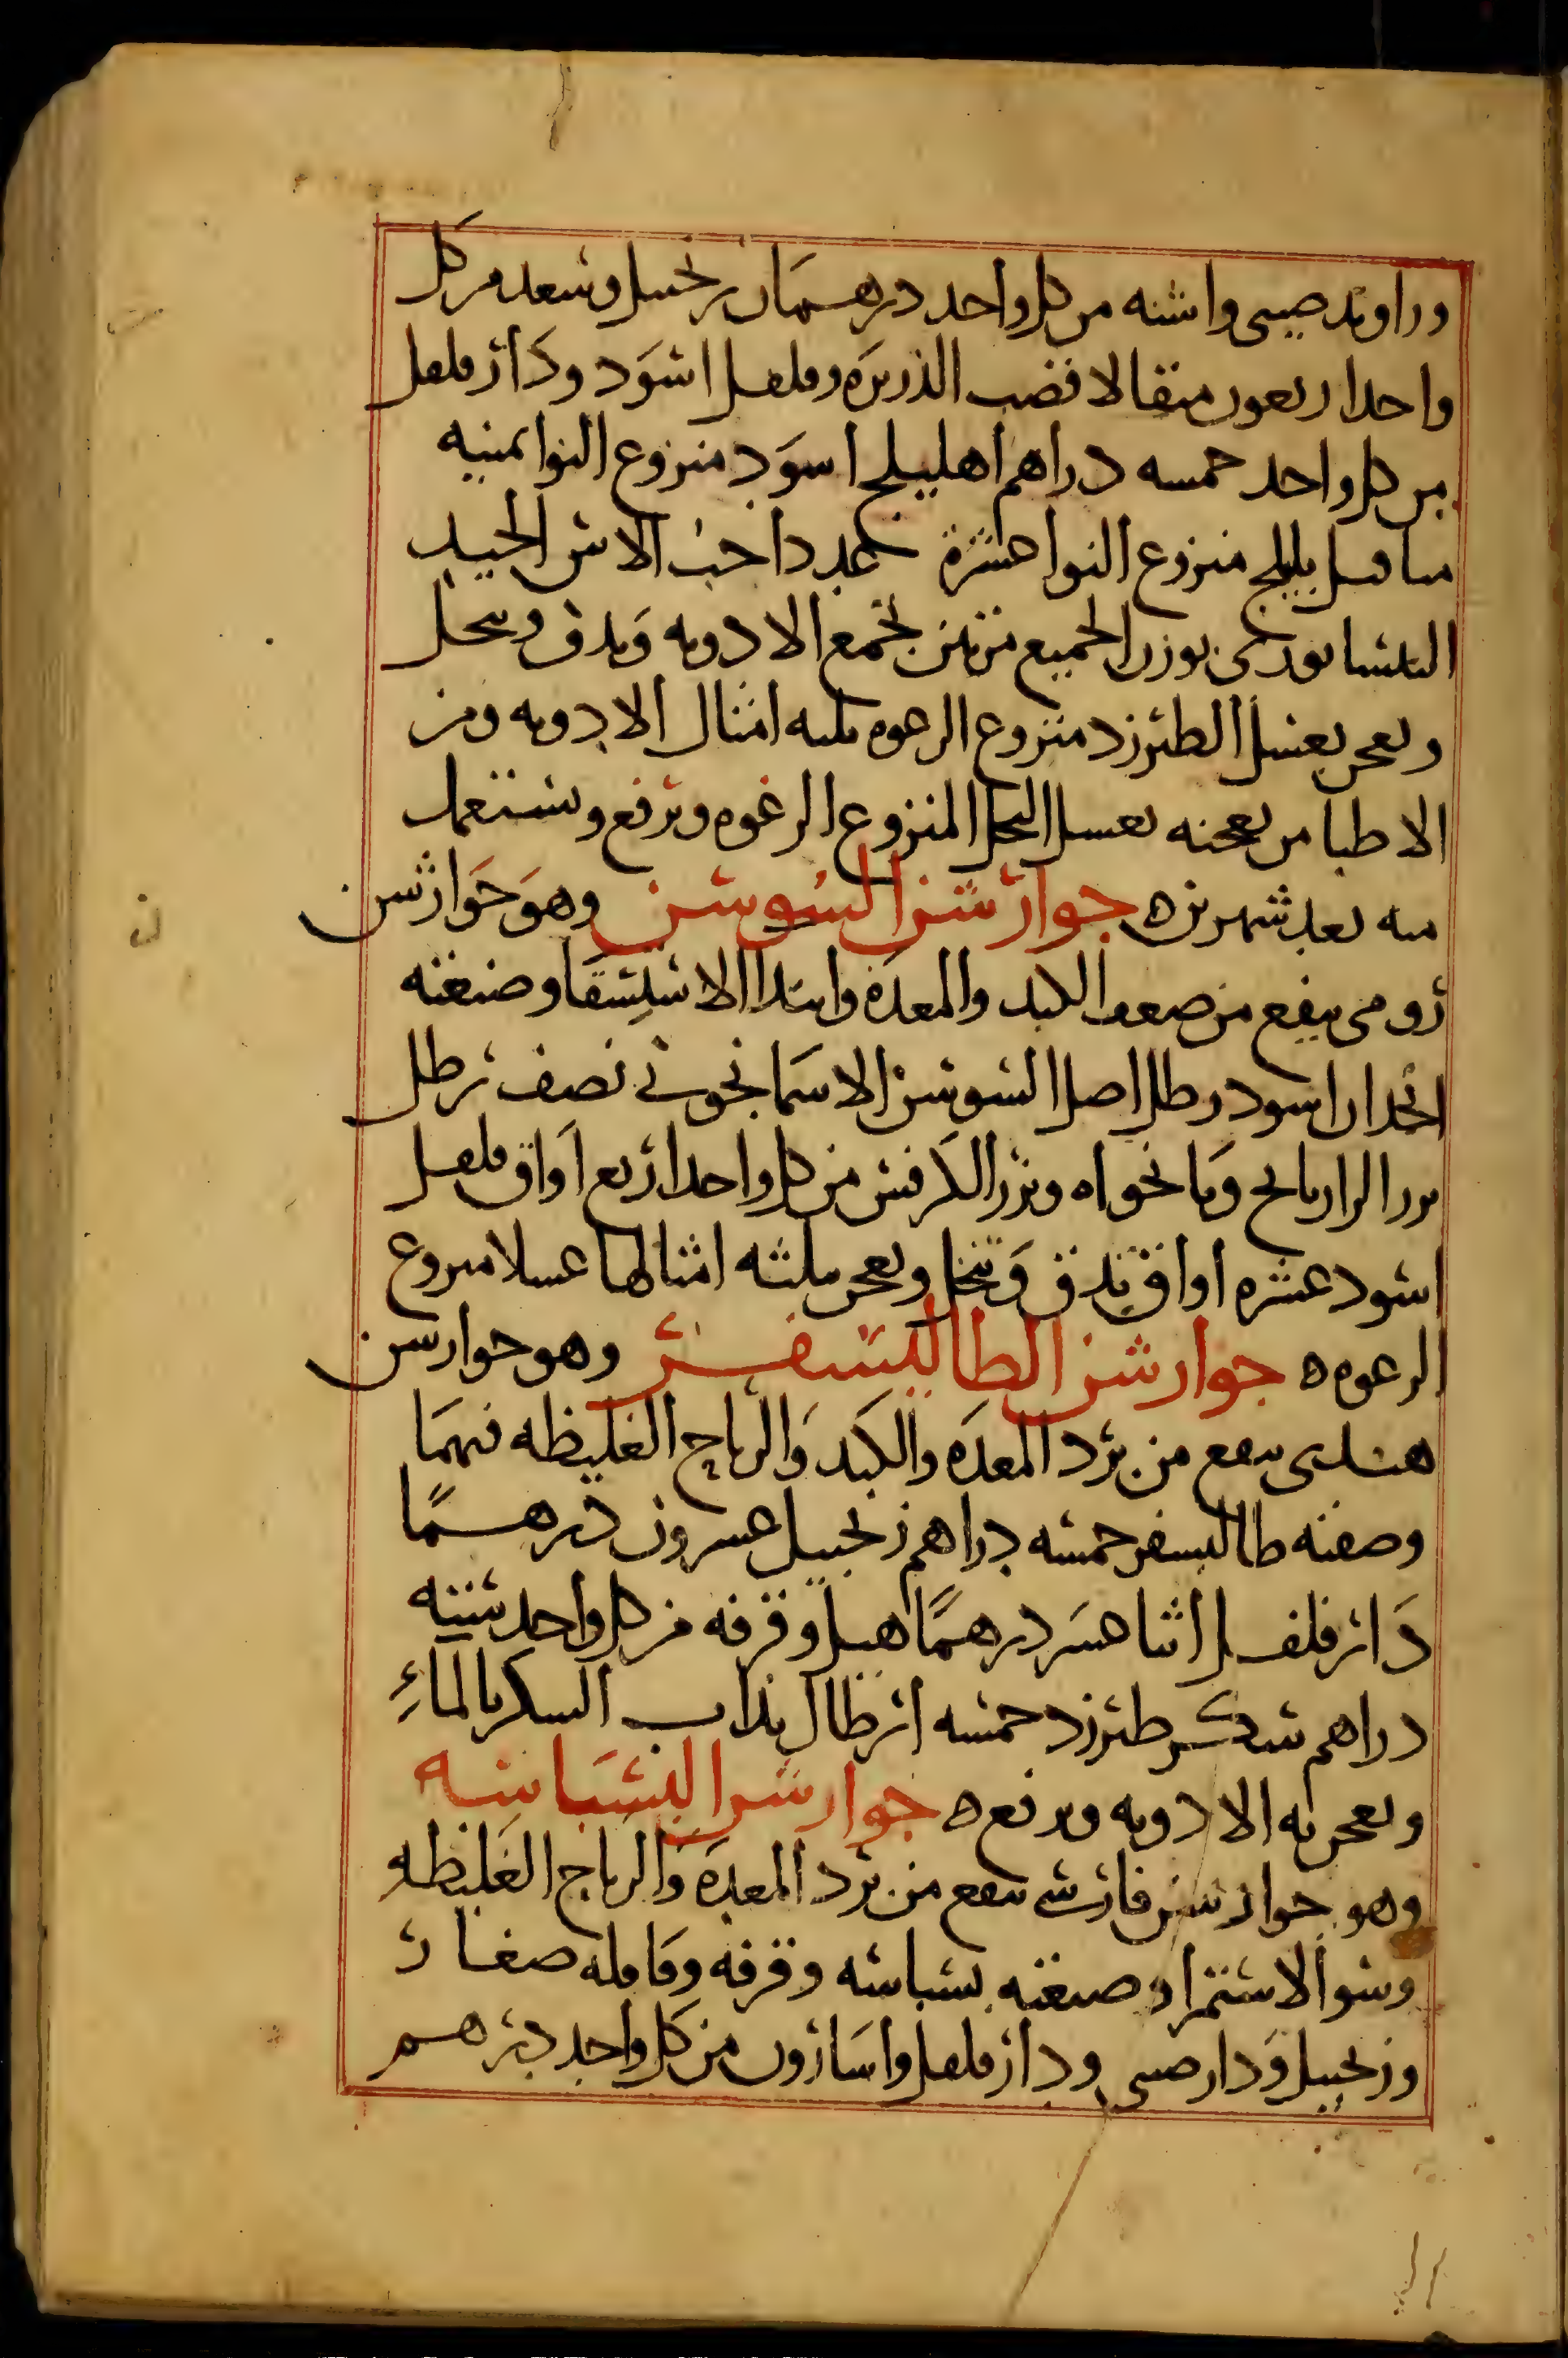 وراوند صيني واشنه من كل واحد درهمان زنجبيل وسعد من كل
واحد اربعون مثقالا قصب الذريره وفلفل اسود ودار فلفل
من كل واحد خمسه دراهم اهليلج اسود منزوع النوا ثمنيه
مثاقيل بليلج منزوع النوا عشرة عددا حب الاس الجيد
النيسابوري بوزن الجميع مرتين تجمع الادويه وتدق وتنخل
وتعجن بعسل الطبرزد منزوع الرغوه ثلثه امثال الادويه ومن
الاطبا من يعجنه بعسل النحل المنزوع الرغوه ويرفع ويستعمل
منه بعد شهرين ه جوارشن السوسن وهو جوارشن
رومي ينفع من ضعف الكبد والمعدة وابتدا الاستسقا وصنعته
انجدان اسود رطل اصل السوسن الاسمانجوني نصف رطل
بزر الرازيانج ونانخواه وبزر الكرفس من كل واحد اربع اواق فلفل
اسود عشره اواق تدق وتنخل وتعجن بثلثه امثالها عسلا منزوع
الرغوه ه جوارشن الطاليسفر وهو جوارشن
هندي ينفع من برد المعدة والكبد والرياح الغليظه فيهما
وصفته طاليسفر خمسه دراهم زنجبيل عشرون درهمًا
دار فلفل اثنا عشر درهمًا هيل وقرفه من كل واحد ستته
دراهم سكر طبرزد خمسه ارطال يذاب السكر بالماءِ
وتعجن به الادويه ويرفع ه جوارشن البسباسه
وهو جوارشن فارسي ينفع من برد المعدة والرياح الغليظه
وسو الاستمرا وصنعته بسباسه وقرفه وقاقله صغار
وزنجبيل ودارصيني ودار فلفل واسارون من كل واحد درهم
ن